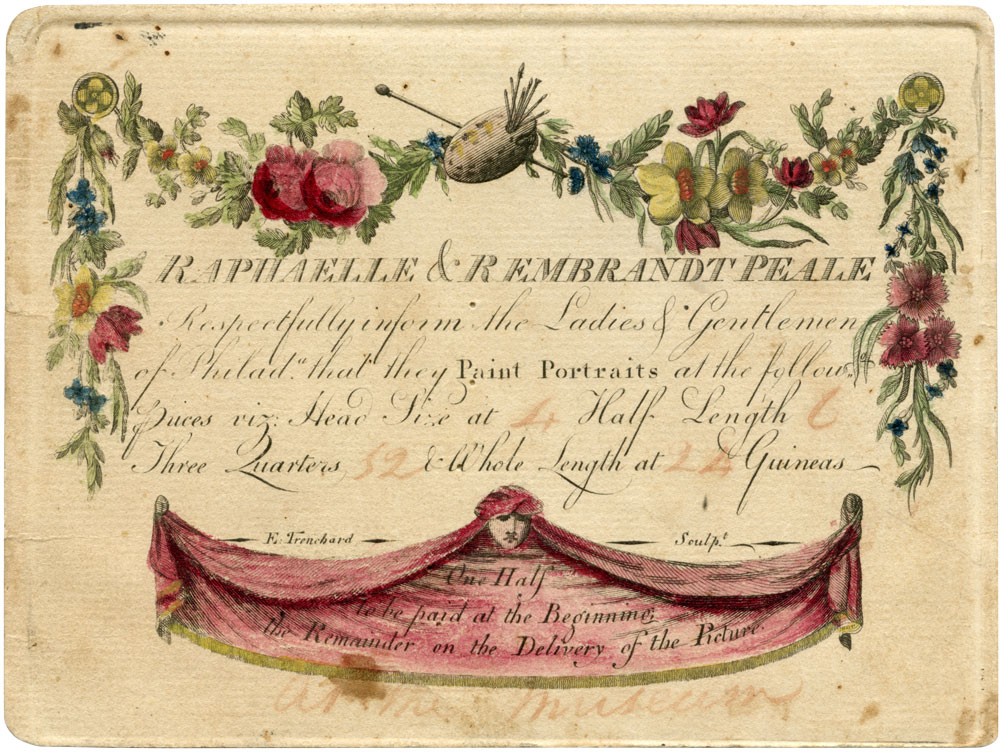 RAPHAELLE & REMBRANDT PEALE
Respectfully inform the Ladies & Gentlemen
of Philad.ª that they Paint Portraits at the follow.g
Prices viz: Head Size at 4 Half Length 6
Three Quarters 12 & Whole Length at 24 Guineas
E. Trenchard Sculp.t
One Half
to be paid at the Beginning;
the Remainder on the Delivery of the Picture.
At the Museum